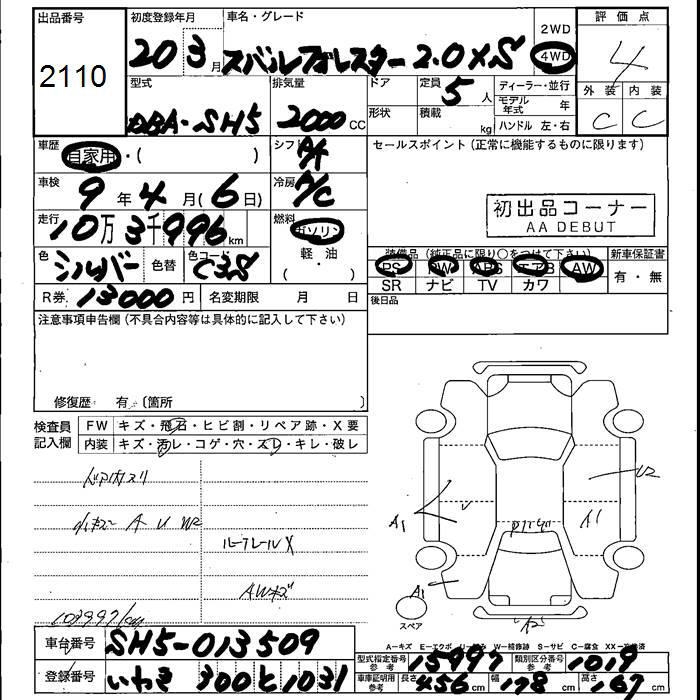 出品番号 初度登録年月 車名・グレード 2WD 評価点
2110 20 3月 スバルフォレスター 2.0XS 4WD 4
型式 排気量 ドア 定員 5人 ディーラー・並行 外装 内装
DBA-SH5 2000cc 形状 積載 kg モデル年式 年 C C
ハンドル 左・右
車歴 自家用・( ) シフト セールスポイント (正常に機能するものに限ります)
車検 9年 4月 (6日) 冷房 A/C
初出品コーナー
AA DEBUT
走行 10万3千996km 燃料 ガソリン
軽・油
色 シルバー 色替 色コード 装備品 (純正品に限り○をつけて下さい) 新車保証書
PS PW ABS エアB AW 有・無
SR ナビ TV カワ
R券 13000円 名変期限 月 日 後日品
注意事項申告欄 (不具合内容等は具体的に記入して下さい)
修復歴 有 (箇所
検査員 FW キズ・飛石・ヒビ割・リペア跡・X要
記入欄 内装 キズ・汚レ・コゲ・穴・スレ・キレ・破レ
ドア内スリ
A U W2
ルーフレールX
AWキズ
103997km
U2
A1
A1
A1
スペア
A2
A=キズ E=エクボ W=補修跡 S=サビ C=腐食
車台番号 SH5-013509
登録番号 いわき 300 と 1031
型式指定番号参考 15997 類別区分番号参考 1019
車庫証明用参考 長さ 456cm 幅 178cm 高さ 167cm